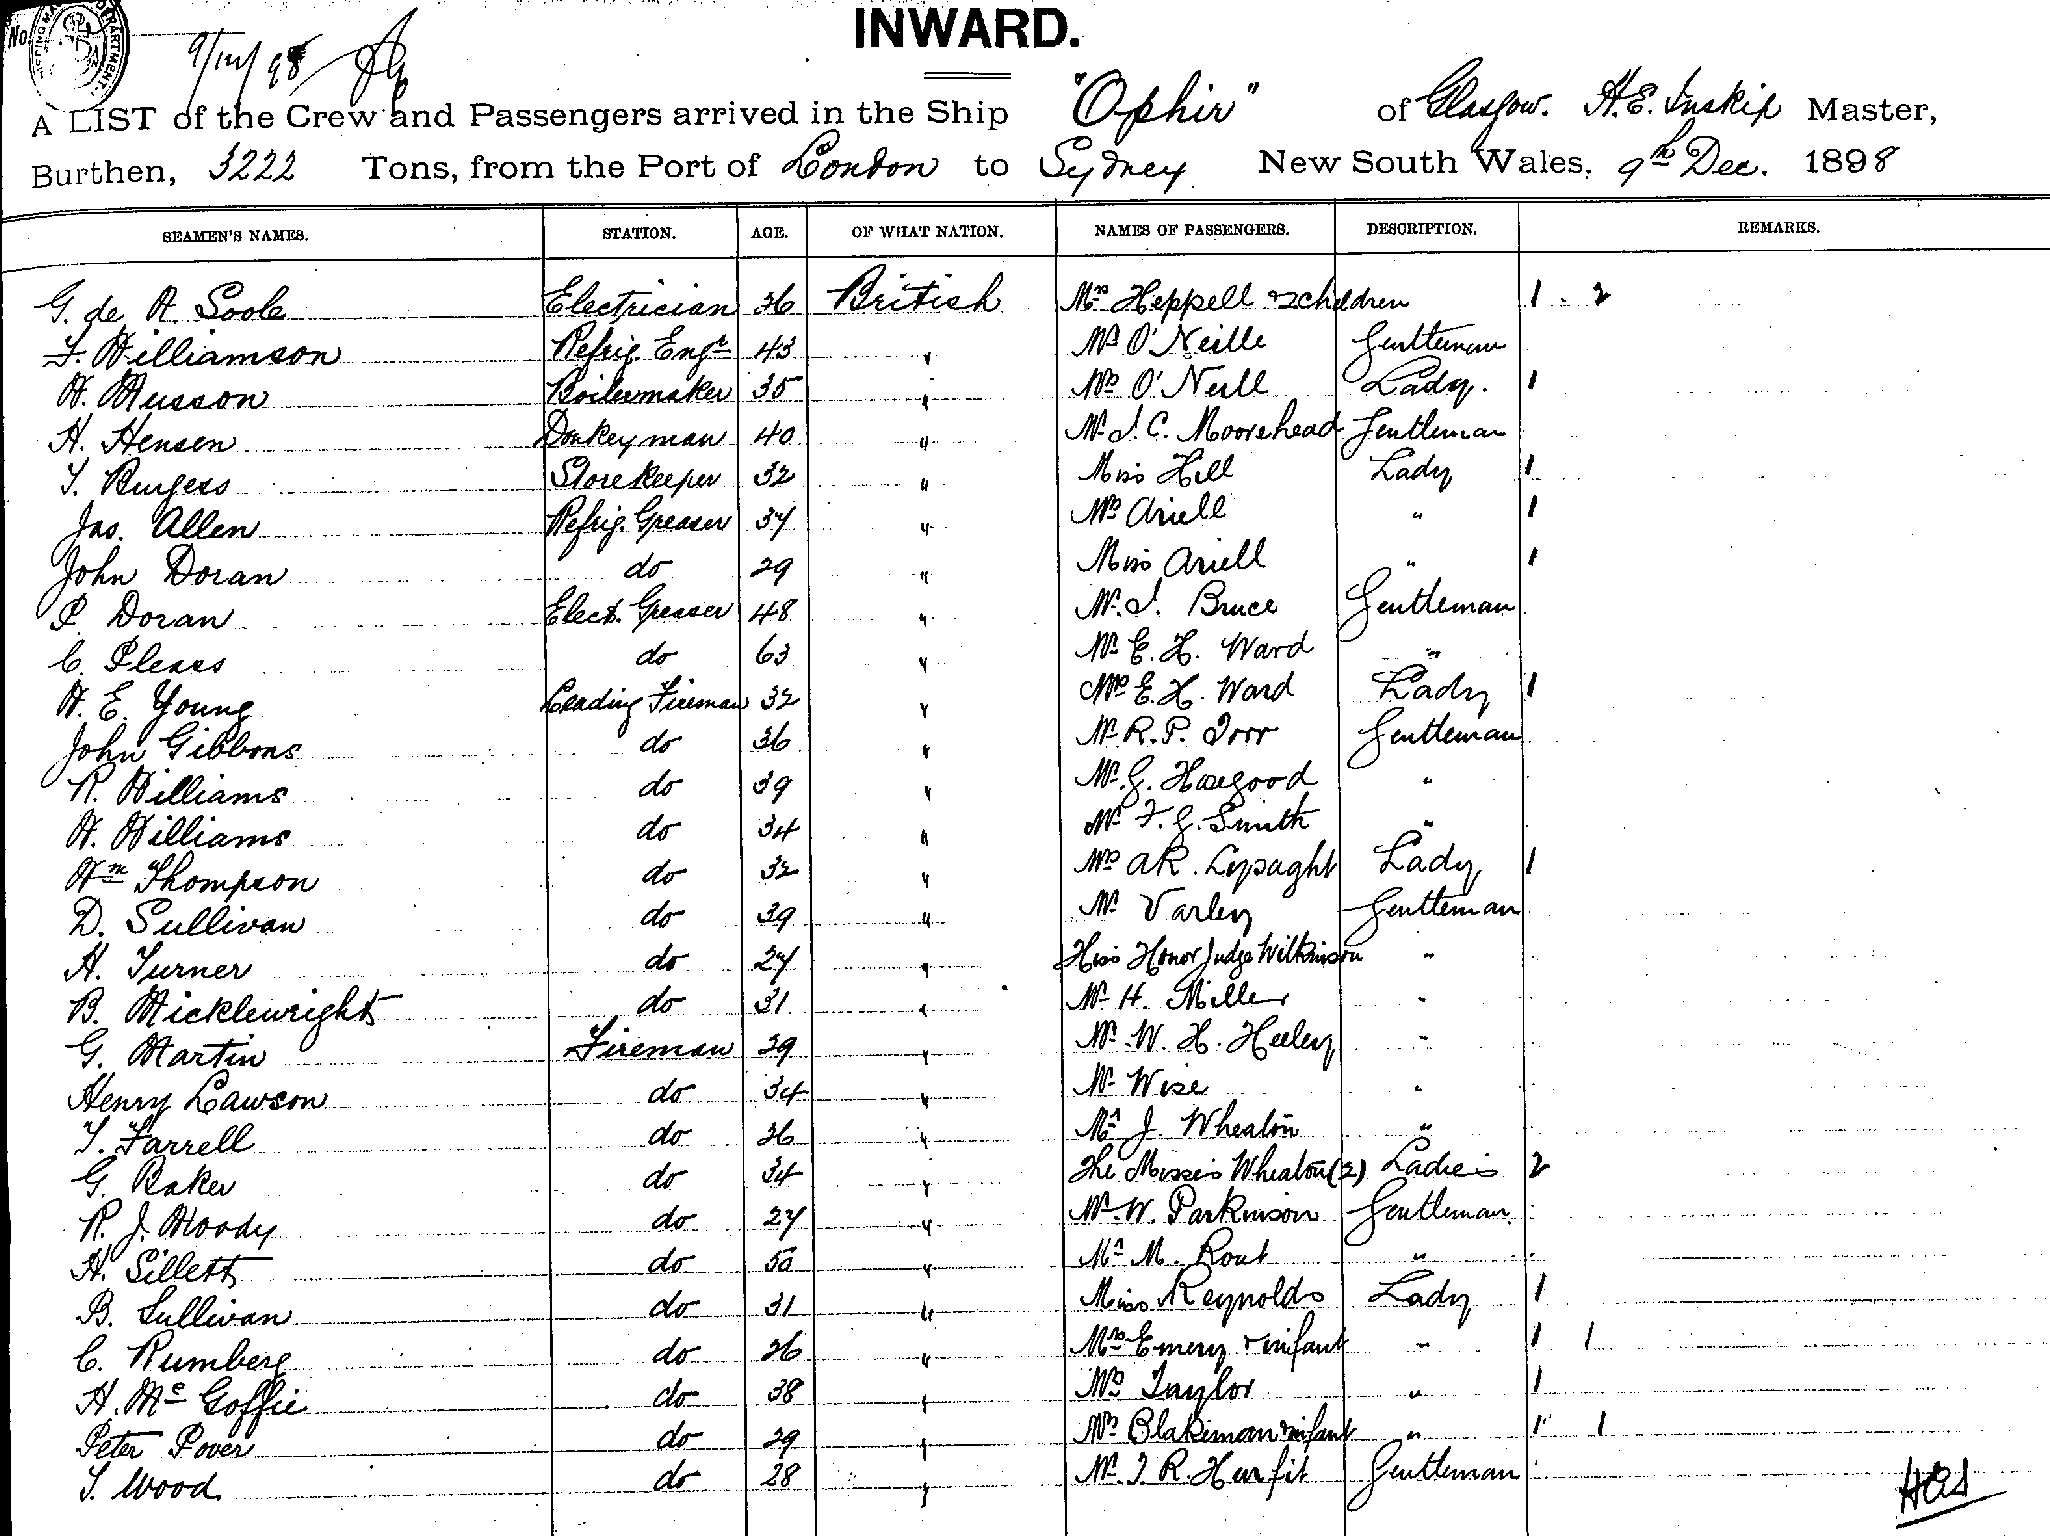 No.
9/12/98
INWARD.
A LIST of the Crew and Passengers arrived in the Ship "Ophir" of Glasgow. H.E. Inskip Master,
Burthen, 3222 Tons, from the Port of London to Sydney New South Wales, 9th Dec. 1898
SEAMEN'S NAMES. STATION. AGE. OF WHAT NATION. NAMES OF PASSENGERS. DESCRIPTION. REMARKS.
G. de A. Soole Electrician 36 British Mrs Heppell & 2 children 1 2
F. Williamson Refrig. Engr 43 " Mr O'Neille Gentleman
W. Musson Boilermaker 35 " Mrs O'Neill Lady. 1
H. Hensen Donkeyman 40 " Mr J. C. Moorehead Gentleman
T. Burgess Storekeeper 32 " Miss Hill Lady 1
Jas. Allen Refrig. Greaser 37 " Mrs Ariell " 1
John Doran do 29 " Miss Ariell " 1
P. Doran Elect. Greaser 48 " Mr. J. Bruce Gentleman
C. Pleass do 63 " Mr E. H. Ward "
W. E. Young Leading Fireman 32 " Mrs E. H. Ward Lady 1
John Gibbons do 36 " Mr R. P. Torr Gentleman
R. Williams do 39 " Mr. G. Hosegood "
W. Williams do 34 " Mr F. G. Smith "
Wm Thompson do 32 " Mrs A R. Lysaght Lady 1
D. Sullivan do 39 " Mr Varley Gentleman
A. Turner do 27 " His Honor Judge Wilkinson "
B. Micklewright do 31 " Mr H. Miller "
G. Martin Fireman 29 " Mr. W. H. Heeley "
Henry Lawson do 34 " Mr Wise "
T. Farrell do 36 " Mr J. Wheaton "
G. Baker do 34 " The Misses Wheaton (2) Ladies 2
R. J. Moody do 27 " Mr. W. Parkinson Gentleman
H. Sillett do 50 " Mr M. Rout "
B. Sullivan do 31 " Miss Reynolds Lady 1
C. Rumberg do 26 " Mrs Emery & infant " 1 1
H. McGoffie do 38 " Mrs Taylor " 1
Peter Pover do 29 " Mrs Blakeman & infant " 1 1
T. Wood do 28 " Mr. J. R. Hurfit Gentleman